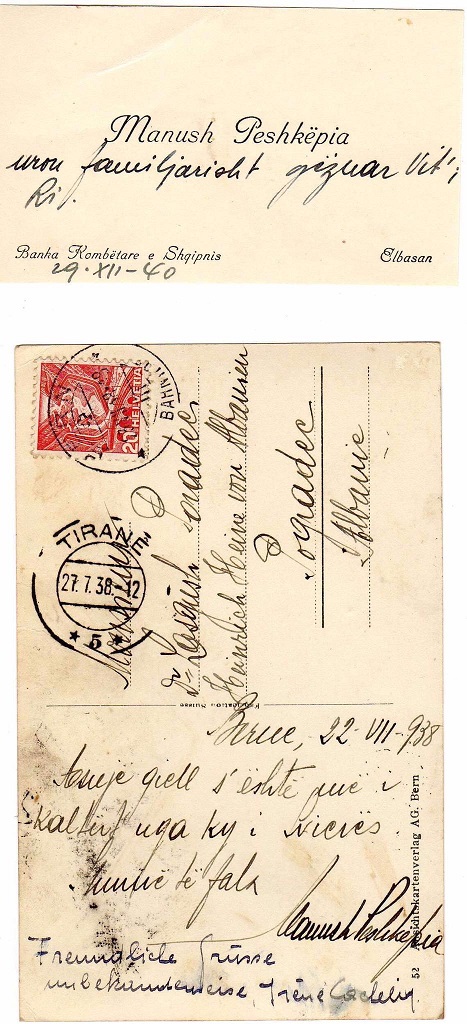 Manush Peshkëpia
uron familjarisht gëzuar Vit'i
Ri.
Banka Kombëtare e Shqipnis
Elbasan
29·XII-40
20 HELVETIA
BAHNH
TIRANE
27. 7. 38.-12
* 5 *
Dr Lasgush Poradec
Heinrich Heine von Albanien
Pogradec
Albanie
Berne, 22 VII-938
Asnjë qiell s'është më i
Kaltër nga ky i Nicës.
Shumë të fala
Manush Peshkëpia
Freundliche Grüsse
unbekannterweise, Irène
52 Ansichtskartenverlag AG. Bern